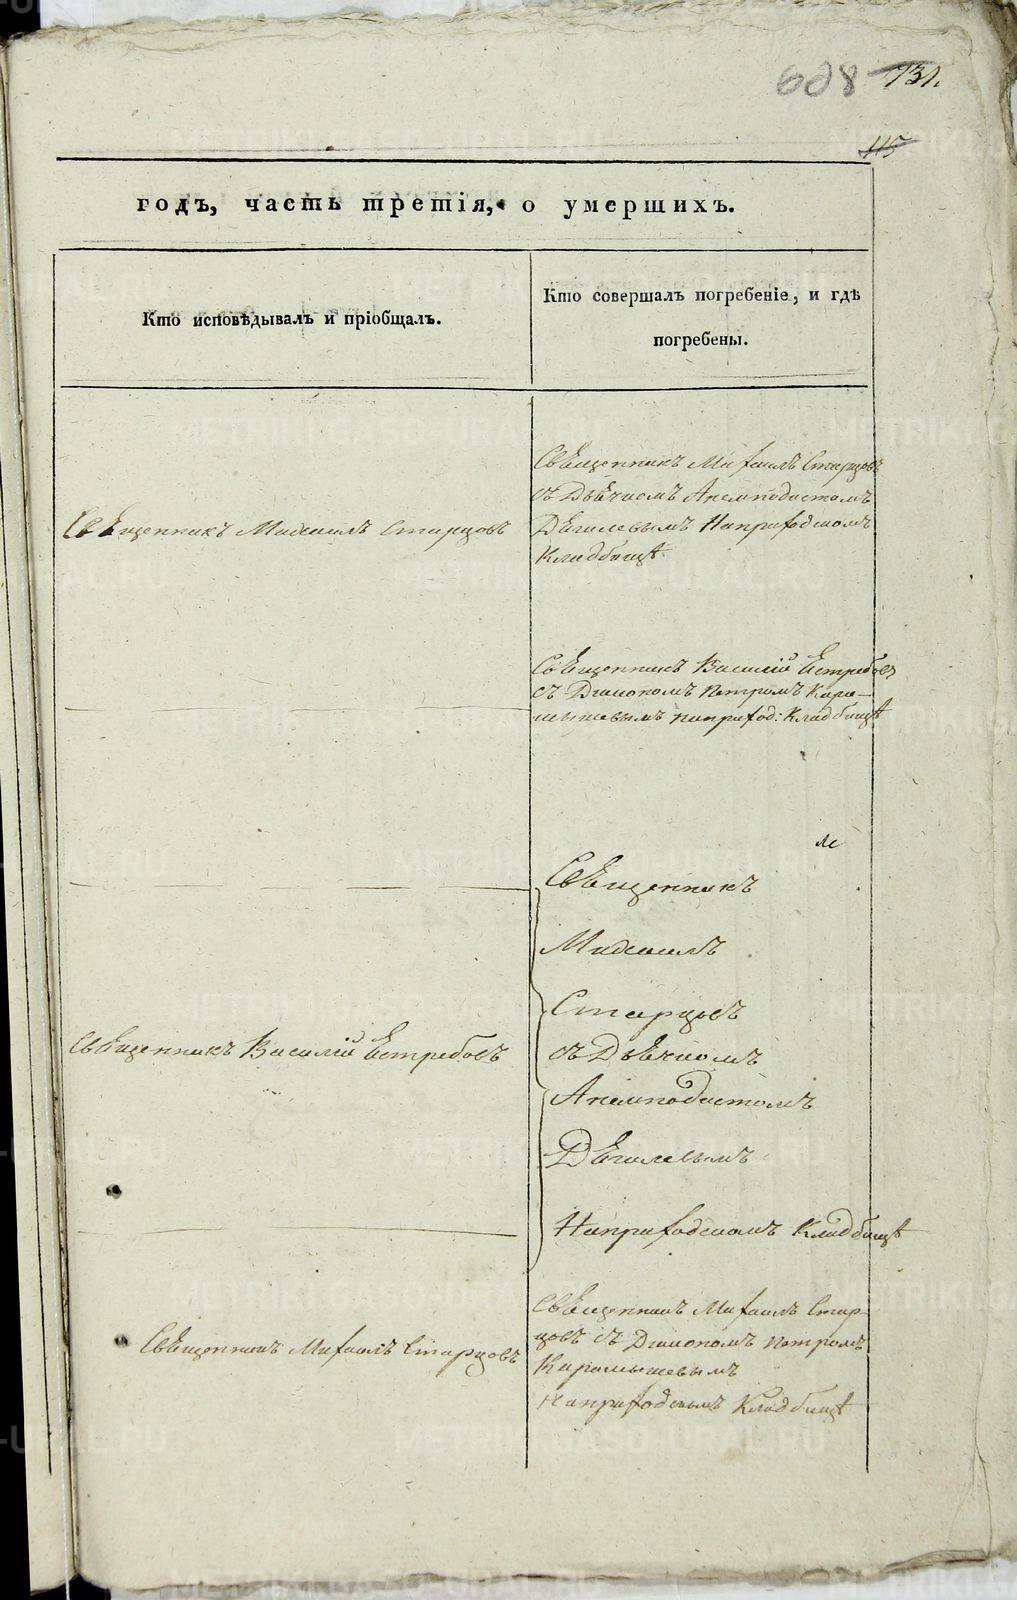 608 731.
115
годъ, часть третія, о умершихъ.
Кто исповѣдывалъ и пріобщалъ.
Кто совершалъ погребеніе, и гдѣ
погребены.
Священникъ Михаилъ Старцовъ
Священникъ Михаилъ Старцовъ
съ Дьячкомъ Анемподистомъ
Дѣгилевымъ Наприходскомъ
Кладбищѣ
Священникъ Василій Ястребовъ
съ Диакономъ Петромъ Кара-
мышевымъ наприход: Кладбищѣ
Священникъ
Михаилъ
Старцовъ
Священникъ Василій Ястребовъ
съ Дьячкомъ
Анемподистомъ
Дѣгилевымъ
Наприходскомъ Кладбищѣ
Священникъ Михаилъ Старцовъ
Священникъ Михаилъ Стар-
цовъ съ Диакономъ Петромъ
Карамышевымъ
Наприходскомъ Кладбищѣ
METRIKI.GASO-URAL.RU